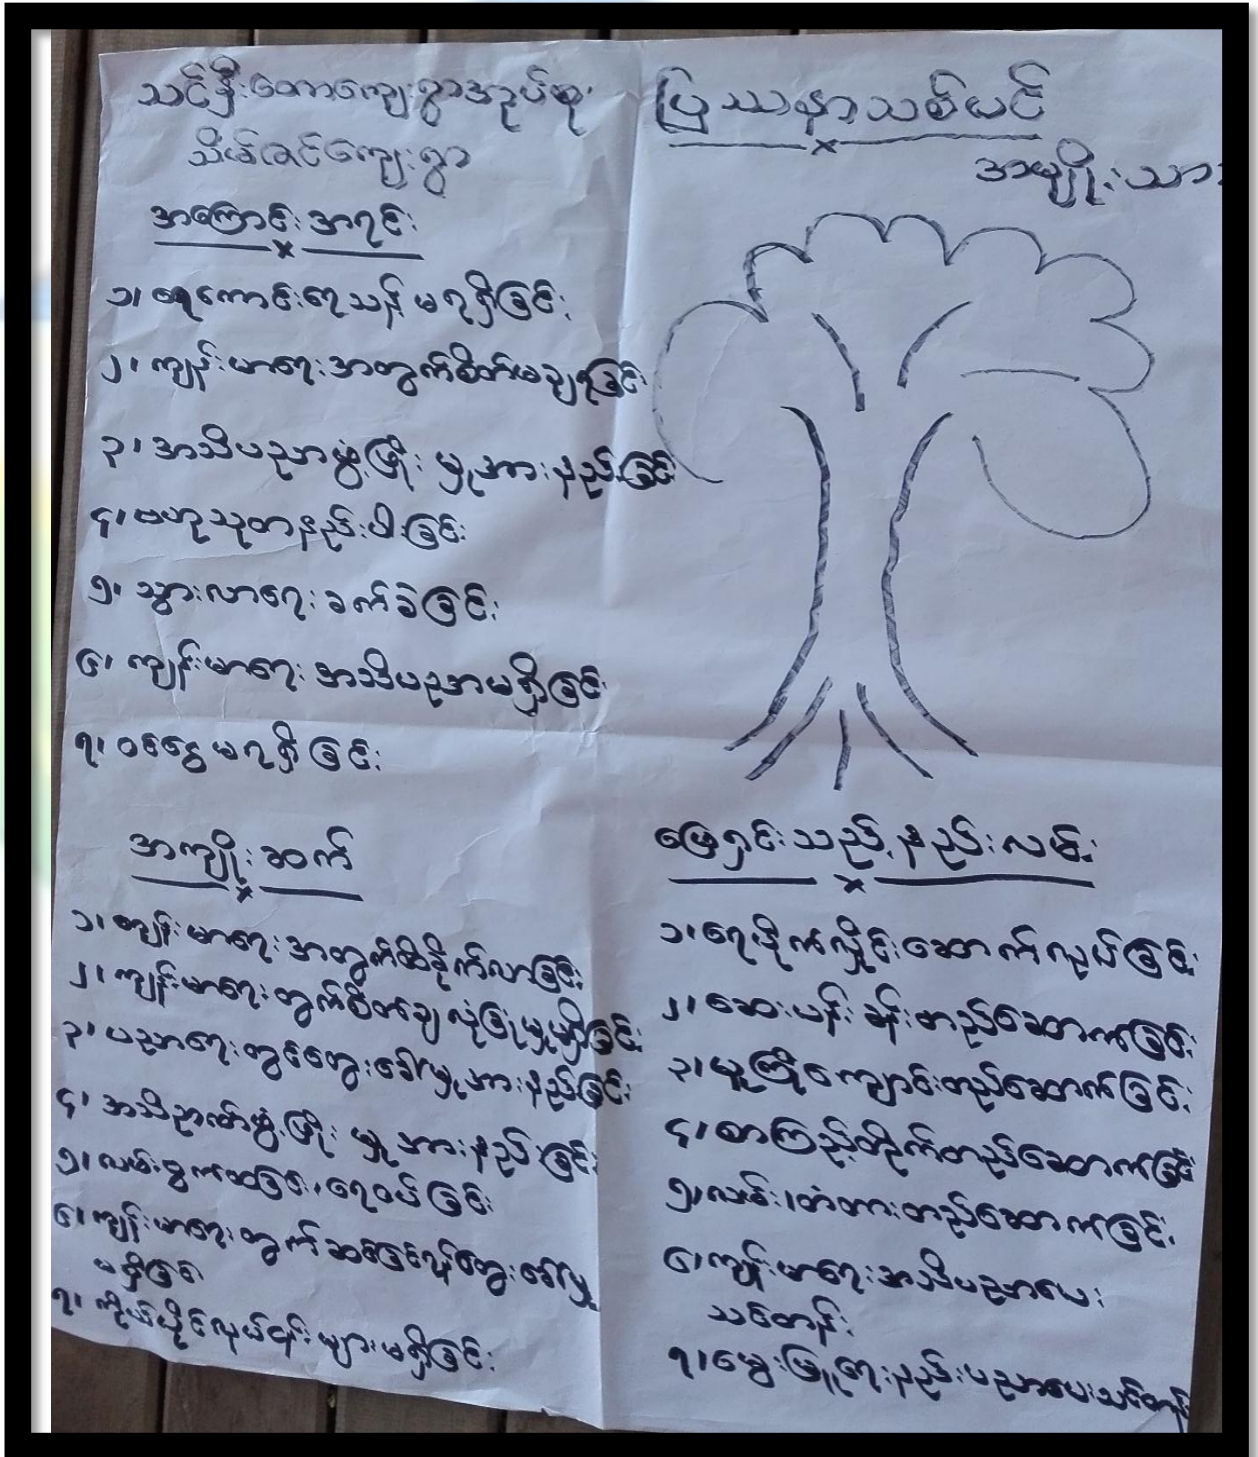 သင်နီးတောကျေးရွာအုပ်စု
သိမ်ခင်ကျေးရွာ
ပြဿနာသစ်ပင်
အမျိုးသား
အကြောင်းအရင်း
၁၊ ရေကောင်းရေသန့် မရရှိခြင်း
၂၊ ကျန်းမာရေးအတွက်စိတ်မချရခြင်း
၃၊ အသိပညာဖွံ့ဖြိုးမှုအားနည်းခြင်း
၄၊ ဗဟုသုတနည်းပါးခြင်း
၅၊ သွားလာရေးခက်ခဲခြင်း
၆၊ ကျန်းမာရေး အသိပညာမရှိခြင်း
၇၊ ဝင်ငွေ မရရှိခြင်း
အကျိုးဆက်
၁၊ ကျန်းမာရေးအတွက်ထိခိုက်လာခြင်း
၂၊ ကျန်းမာရေးတွက်စိတ်ချလုံခြုံမှုမရှိခြင်း
၃၊ ပညာရေးတွင်တွေးခေါ်မှုအားနည်းခြင်း
၄၊ အသိဉာဏ်ဖွံ့ဖြိုးမှုအားနည်းခြင်း
၅၊ လမ်းဗွက်ထခြင်း၊ ရေဝပ်ခြင်း
၆၊ ကျန်းမာရေးတွက် ဆင်ခြင်တွေးခေါ်မှု
မရှိခြင်း
၇၊ ကိုယ်ပိုင်လုပ်ငန်းများမရှိခြင်း
ဖြေရှင်းသည့်နည်းလမ်း
၁၊ ရေပိုက်လှိုင်းဆောက်လုပ်ခြင်း
၂၊ ဆေးပန်းခန်းတည်ဆောက်ခြင်း
၃၊ မူကြိုကျောင်းတည်ဆောက်ခြင်း
၄၊ စာကြည့်တိုက်တည်ဆောက်ခြင်း
၅၊ လမ်း၊တံတားတည်ဆောက်ခြင်း
၆၊ ကျန်းမာရေးအသိပညာပေး
သင်တန်း
၇၊ မွေးမြူရေးနည်းပညာပေးသင်တန်း